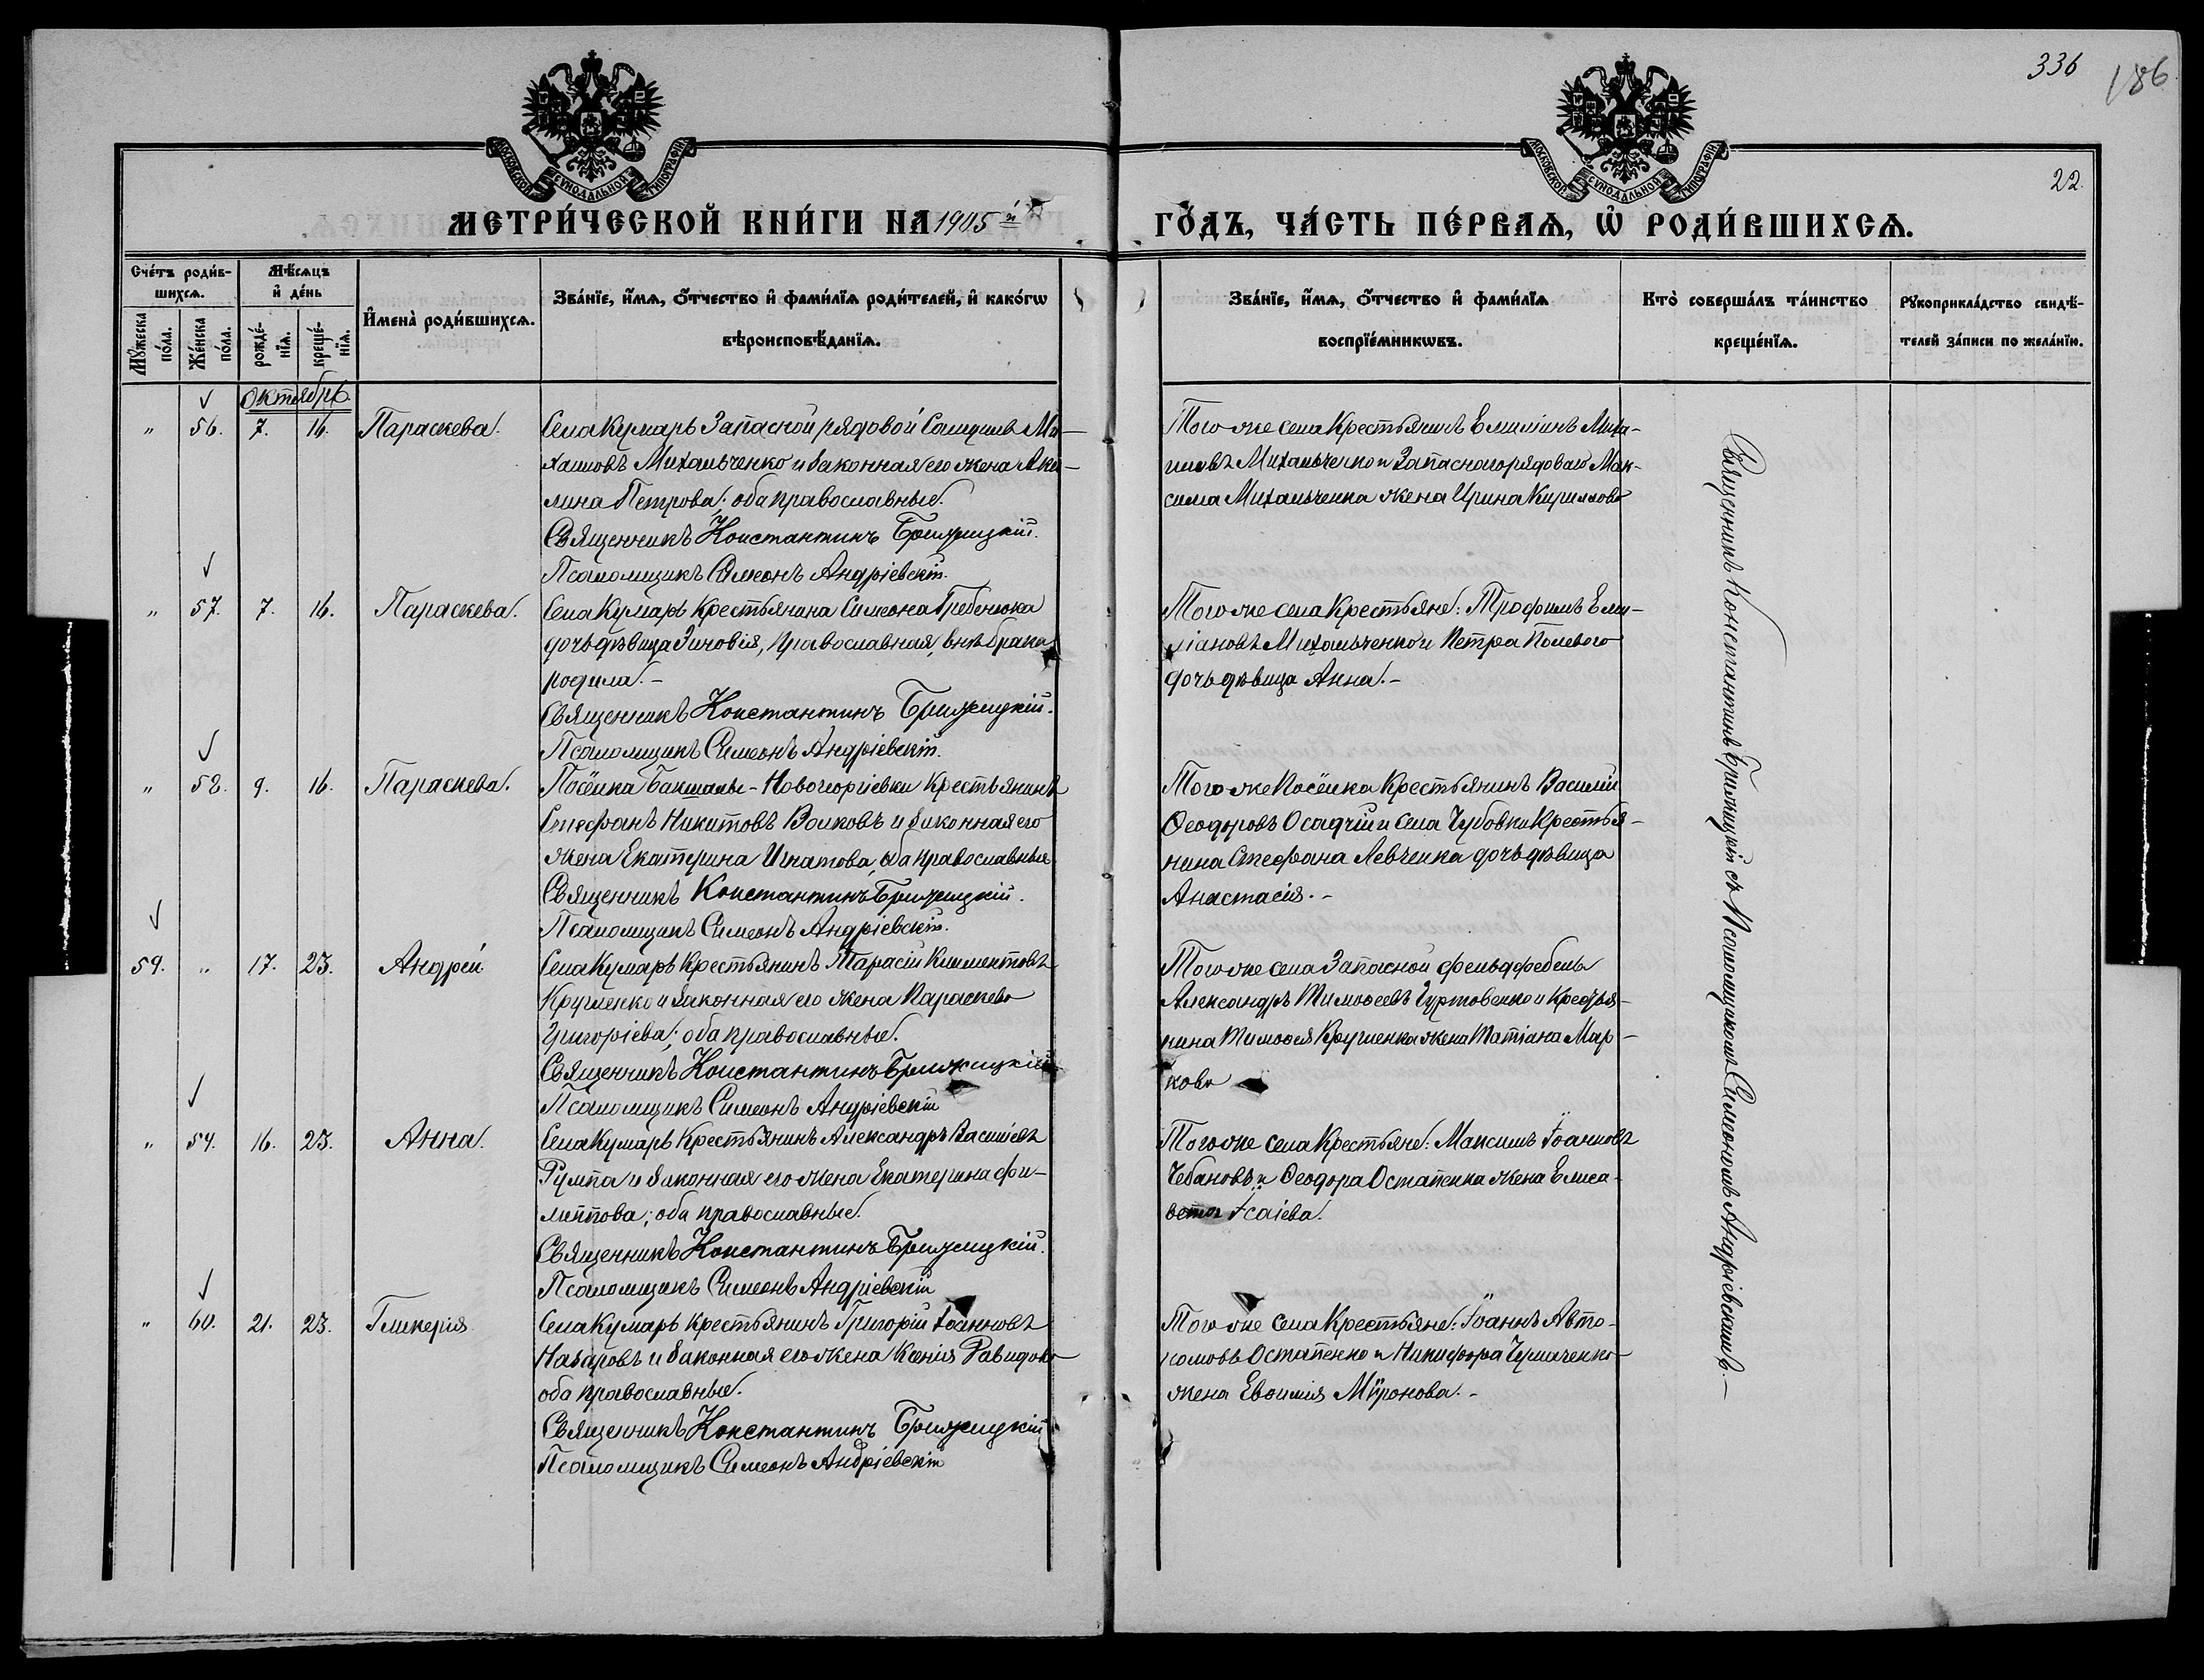 336
186
22.
МОСКОВСКОЙ СѴНОДАЛЬНОЙ ТИПОГРАФІИ
МОСКОВСКОЙ СѴНОДАЛЬНОЙ ТИПОГРАФІИ
МЕТРИ́ЧЕСКОЙ КНИ́ГИ НА 1905й ГО́ДЪ, ЧА́СТЬ ПЕ́РВАѦ, Ѡ РОДИ́ВШИХСѦ.
Сче́тъ роди́в-
шихсѧ.
Мѣ́сѧцъ
и҆ де́нь
Мꙋ́жеска по́ла.
Же́нска по́ла.
рожде́-
нїѧ.
креще́-
нїѧ.
И҆мена̀ роди́вшихсѧ.
Зва́нїе, и҆́мѧ, ѻ҆́тчество и҆ фами́лїѧ роди́телей, и҆ како́гѡ
вѣроисповѣ́данїѧ.
Зва́нїе, и҆́мѧ, ѻ҆́тчество и҆ фами́лїѧ
воспрїе́мникѡвъ.
Кто̀ соверша́лъ та́инство
креще́нїѧ.
Рꙋкоприкла́дство свидѣ́-
телей за́писи по жела́нїю.
Октябрь.
" 56. 7. 16. Параскева.
Села Кумарь Запасной рядовой Ми-
хаиловъ Михальченко и законная его жена Аки-
лина Петрова; оба православные.
Священникъ Константинъ Брижицкій.
Псаломщикъ Симеонъ Андріевскій.
Того же села Крестьянинъ Емиліанъ Миха-
иловъ Михальченко и Запасного рядоваго Мак-
сима Михальченка жена Ирина Кириллова
" 57. 7. 16. Параскева.
Села Кумарь Крестьянина Симеона Гребенюка
дочь дѣвица Зиновія, православная, внѣ брака
родила. -
Священникъ Константинъ Брижицкій.
Псаломщикъ Симеонъ Андріевскій.
Того же села Крестьяне: Трофимъ Еми-
ліановъ Михальченко и Петра Полевого
дочь дѣвица Анна. -
" 58. 9. 16. Параскева.
Посёлка Бакшалы-Новогеоргіевки Крестьянинъ
Стефанъ Никитовъ Волковъ и законная его
жена Екатерина Игнатова, оба православные
Священникъ Константинъ Брижицкій.
Псаломщикъ Симеонъ Андріевскій.
Того же Посёлка Крестьянинъ Василій
Ѳеодоровъ Осадчій и села Чубовки Крестья-
нина Стефана Левченка дочь дѣвица
Анастасія. -
59. " 17. 23. Андрей
Села Кумарь Крестьянинъ Тарасій Климентовъ
и законная его жена Параскева
Григоріева; оба православные.
Священникъ Константинъ Брижицкій
Псаломщикъ Симеонъ Андріевскій
Того же села Запасной фельдфебель
Александръ Тимоѳеевъ и Крестья-
нина Тимоѳея жена Татіана Мар-
кова
" 59. 16. 23. Анна.
Села Кумарь Крестьянинъ Александръ Василіевъ
и законная его жена Екатерина Фи-
липпова; оба православные.
Священникъ Константинъ Брижицкій.
Псаломщикъ Симеонъ Андріевскій
Того же села Крестьяне: Максимъ Іоанновъ
Чебановъ и Ѳеодора Остапенка жена Елиса-
вета Ісаіева.
" 60. 21. 23. Гликерія
Села Кумарь Крестьянинъ Григорій Іоанновъ
Назаровъ и законная его жена Ксенія Давидова
оба православные.
Священникъ Константинъ Брижицкій
Псаломщикъ Симеонъ Андріевскій
Того же села Крестьяне: Іоаннъ Авто-
номовъ Остапенко и Никифора Чумаченко
жена Евѳимія Мѵронова. -
Священникъ Константинъ Брижицкій съ Псаломщикомъ Симеономъ Андріевскимъ. -